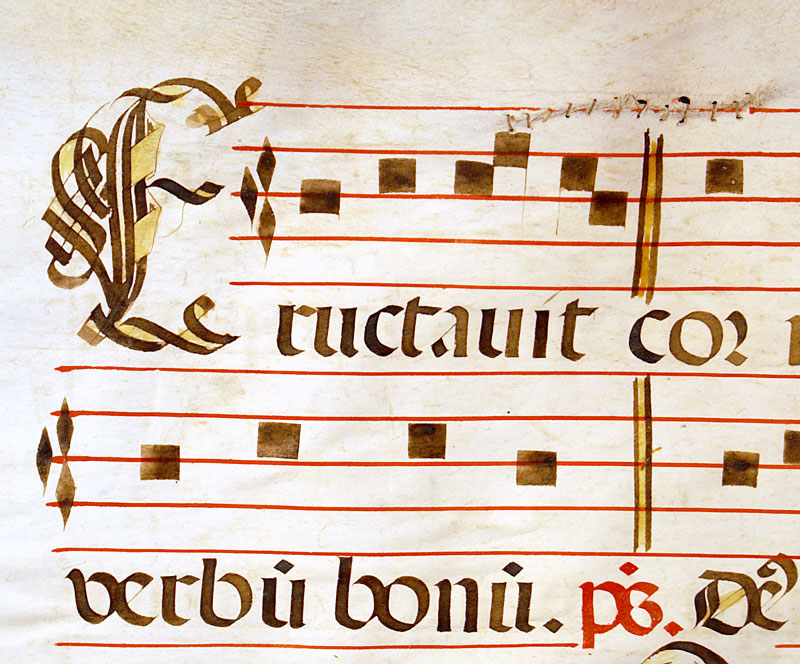 Eructauit cor
verbū bonū. ps. De